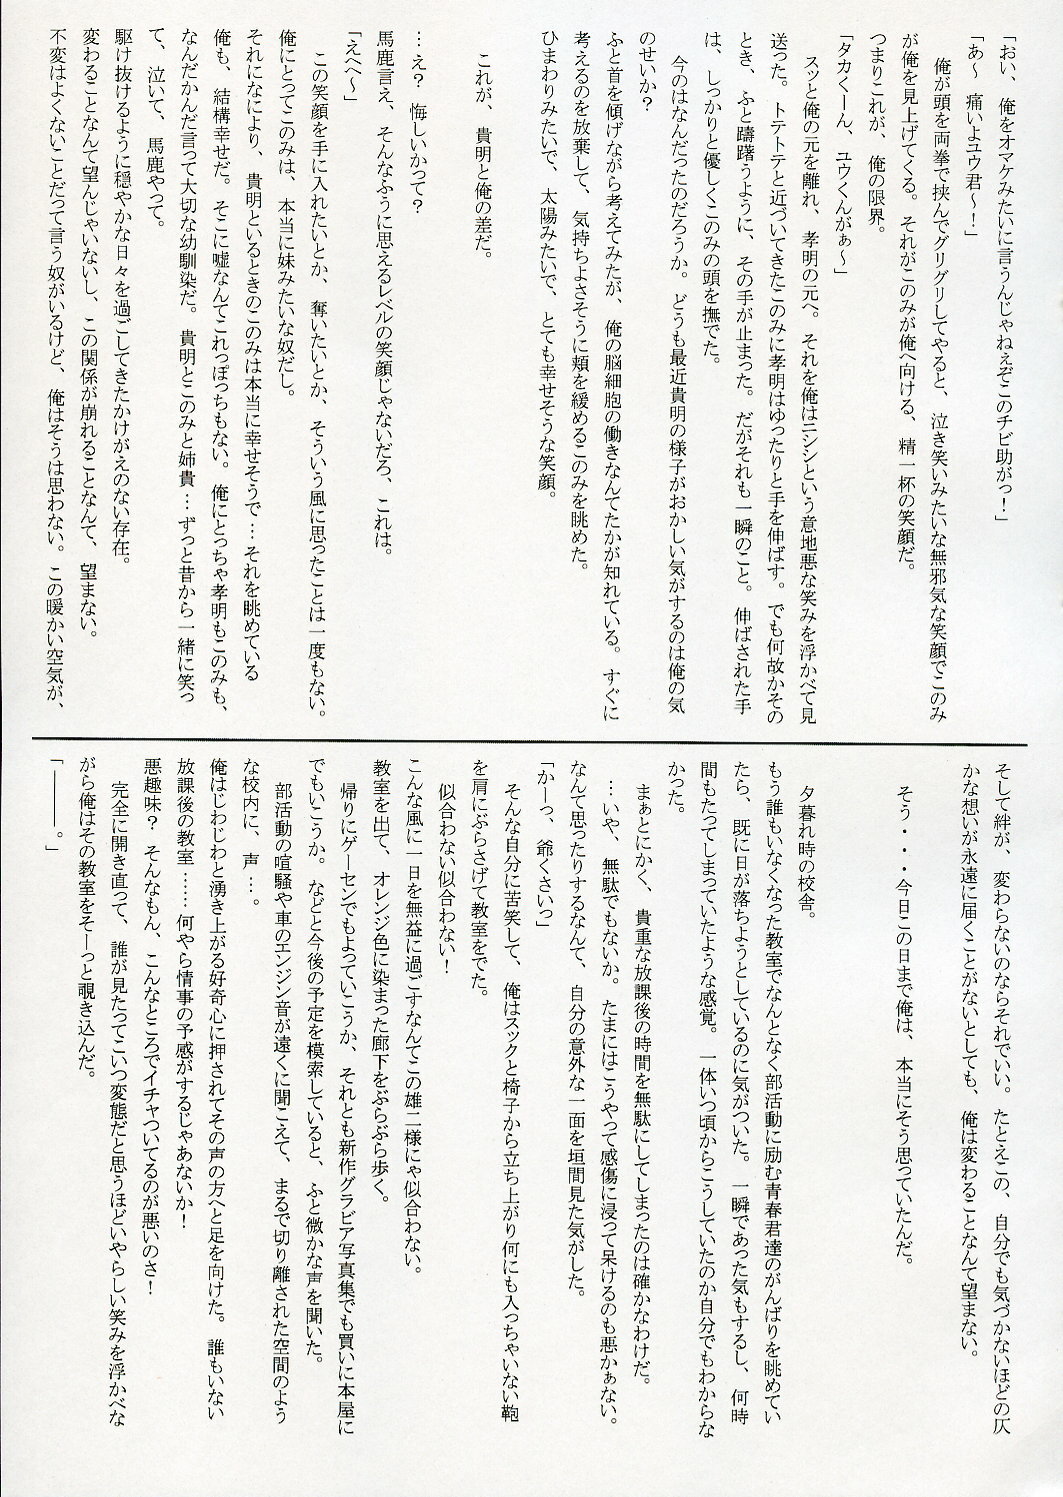 「おい、俺をオマケみたいに言うんじゃねぇぞこのチビ助がっ！」
「あ～　痛いよユウ君～！」
　俺が頭を両拳で挟んでグリグリしてやると、泣き笑いみたいな無邪気な笑顔でこのみ
が俺を見上げてくる。それがこのみが俺へ向ける、精一杯の笑顔だ。
つまりこれが、俺の限界。
「タカくーん、ユウくんがぁ～」
　スッと俺の元を離れ、孝明の元へ。それを俺はニシシという意地悪な笑みを浮かべて見
送った。トテトテと近づいてきたこのみに孝明はゆったりと手を伸ばす。でも何故かその
とき、ふと躊躇うように、その手が止まった。だがそれも一瞬のこと。伸ばされた手
は、しっかりと優しくこのみの頭を撫でた。
　今のはなんだったのだろうか。どうも最近貴明の様子がおかしい気がするのは俺の気
のせいか？
ふと首を傾げながら考えてみたが、俺の脳細胞の働きなんてたかが知れている。すぐに
考えるのを放棄して、気持ちよさそうに頬を緩めるこのみを眺めた。
ひまわりみたいで、太陽みたいで、とても幸せそうな笑顔。
　これが、貴明と俺の差だ。
…え？　悔しいかって？
馬鹿言え、そんなふうに思えるレベルの笑顔じゃないだろ、これは。
「えへ～」
　この笑顔を手に入れたいとか、奪いたいとか、そういう風に思ったことは一度もない。
俺にとってこのみは、本当に妹みたいな奴だし。
それになにより、貴明といるときのこのみは本当に幸せそうで…それを眺めている
俺も、結構幸せだ。そこに嘘なんてこれっぽっちもない。俺にとっちゃ孝明もこのみも、
なんだかんだ言って大切な幼馴染だ。貴明とこのみと姉貴…ずっと昔から一緒に笑っ
て、泣いて、馬鹿やって。
駆け抜けるように穏やかな日々を過ごしてきたかけがえのない存在。
変わることなんて望んじゃいないし、この関係が崩れることなんて、望まない。
不変はよくないことだって言う奴がいるけど、俺はそうは思わない。この暖かい空気が、
そして絆が、変わらないのならそれでいい。たとえこの、自分でも気づかないほどの仄
かな想いが永遠に届くことがないとしても、俺は変わることなんて望まない。
　そう・・・今日この日まで俺は、本当にそう思っていたんだ。
　夕暮れ時の校舎。
もう誰もいなくなった教室でなんとなく部活動に励む青春君達のがんばりを眺めてい
たら、既に日が落ちようとしているのに気がついた。一瞬であった気もするし、何時
間もたってしまっていたような感覚。一体いつ頃からこうしていたのか自分でもわからな
かった。
　まぁとにかく、貴重な放課後の時間を無駄にしてしまったのは確かなわけだ。
　…いや、無駄でもないか。たまにはこうやって感傷に浸って呆けるのも悪かぁない。
なんて思ったりするなんて、自分の意外な一面を垣間見た気がした。
「かーっ、爺くさいっ」
　そんな自分に苦笑して、俺はスックと椅子から立ち上がり何にも入っちゃいない鞄
を肩にぶらさげて教室をでた。
　似合わない似合わない！
こんな風に一日を無益に過ごすなんてこの雄二様にゃ似合わない。
教室を出て、オレンジ色に染まった廊下をぶらぶら歩く。
　帰りにゲーセンでもよっていこうか、それとも新作グラビア写真集でも買いに本屋に
でもいこうか。などと今後の予定を模索していると、ふと微かな声を聞いた。
　部活動の喧騒や車のエンジン音が遠くに聞こえて、まるで切り離された空間のよう
な校内に、声…。
俺はじわじわと湧き上がる好奇心に押されてその声の方へと足を向けた。誰もいない
放課後の教室……何やら情事の予感がするじゃあないか！
悪趣味？　そんなもん、こんなところでイチャついてるのが悪いのさ！
　完全に開き直って、誰が見たってこいつ変態だと思うほどいやらしい笑みを浮かべな
がら俺はその教室をそーっと覗き込んだ。
「―――。」